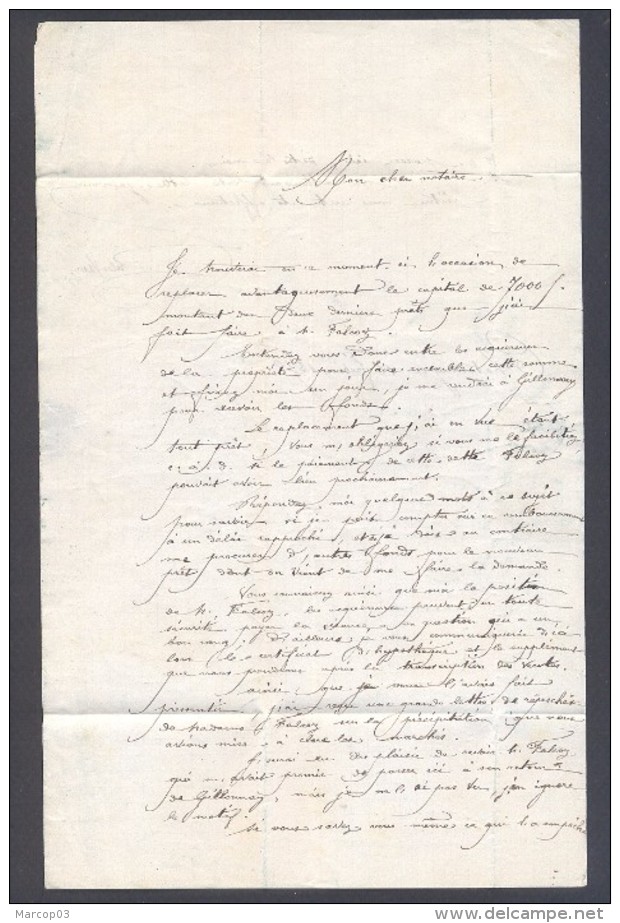 Mon cher notaire
Je trouverai en ce moment-ci l'occasion de
replacer avantageusement le capital de 7000 f.
montant des deux derniers prêts que j'ai
fait faire à M. Falcoz
Entendez vous donc entre les acquéreurs
de la propriété pour faire ensemble cette somme
et fixez moi un jour, je me rendrai à Gillonnay
pour recevoir les fonds.
Le replacement que j'ai en vue étant
tout prêt, vous m'obligeriez si vous me le facilitiez,
c. à. d. si le paiement de cette dette Falcoz
pouvait avoir lieu prochainement.
Répondez moi quelques mots à ce sujet
pour savoir si je puis compter sur ce remboursement
à un délai rapproché, et si je dois au contraire
me procurer d'autres fonds pour le nouveau
prêt dont on vient de me faire la demande
Vous connaissez ainsi que moi la position
de M. Falcoz, les acquéreurs peuvent en toute
sécurité payer la créance en question qui a un
bon rang. D'ailleurs je vous communiquerai d'ici
lors le certificat d'hypothèque et le supplément
que nous prendrons après la transcription des ventes.
Ainsi que je vous l'avais fait
pressentir j'ai reçu une grande lettre de
de Madame Falcoz sur la précipitation que nous
avions mise à clore les marchés.
J'aurai eu du plaisir de revoir M. Falcoz
qui m'avait promis de passer ici à son retour
de Gillonnay, mais je ne l'ai pas vu, j'en ignore
le motif.
Si vous savez vous même ce qui l'a empêché
Marcop03